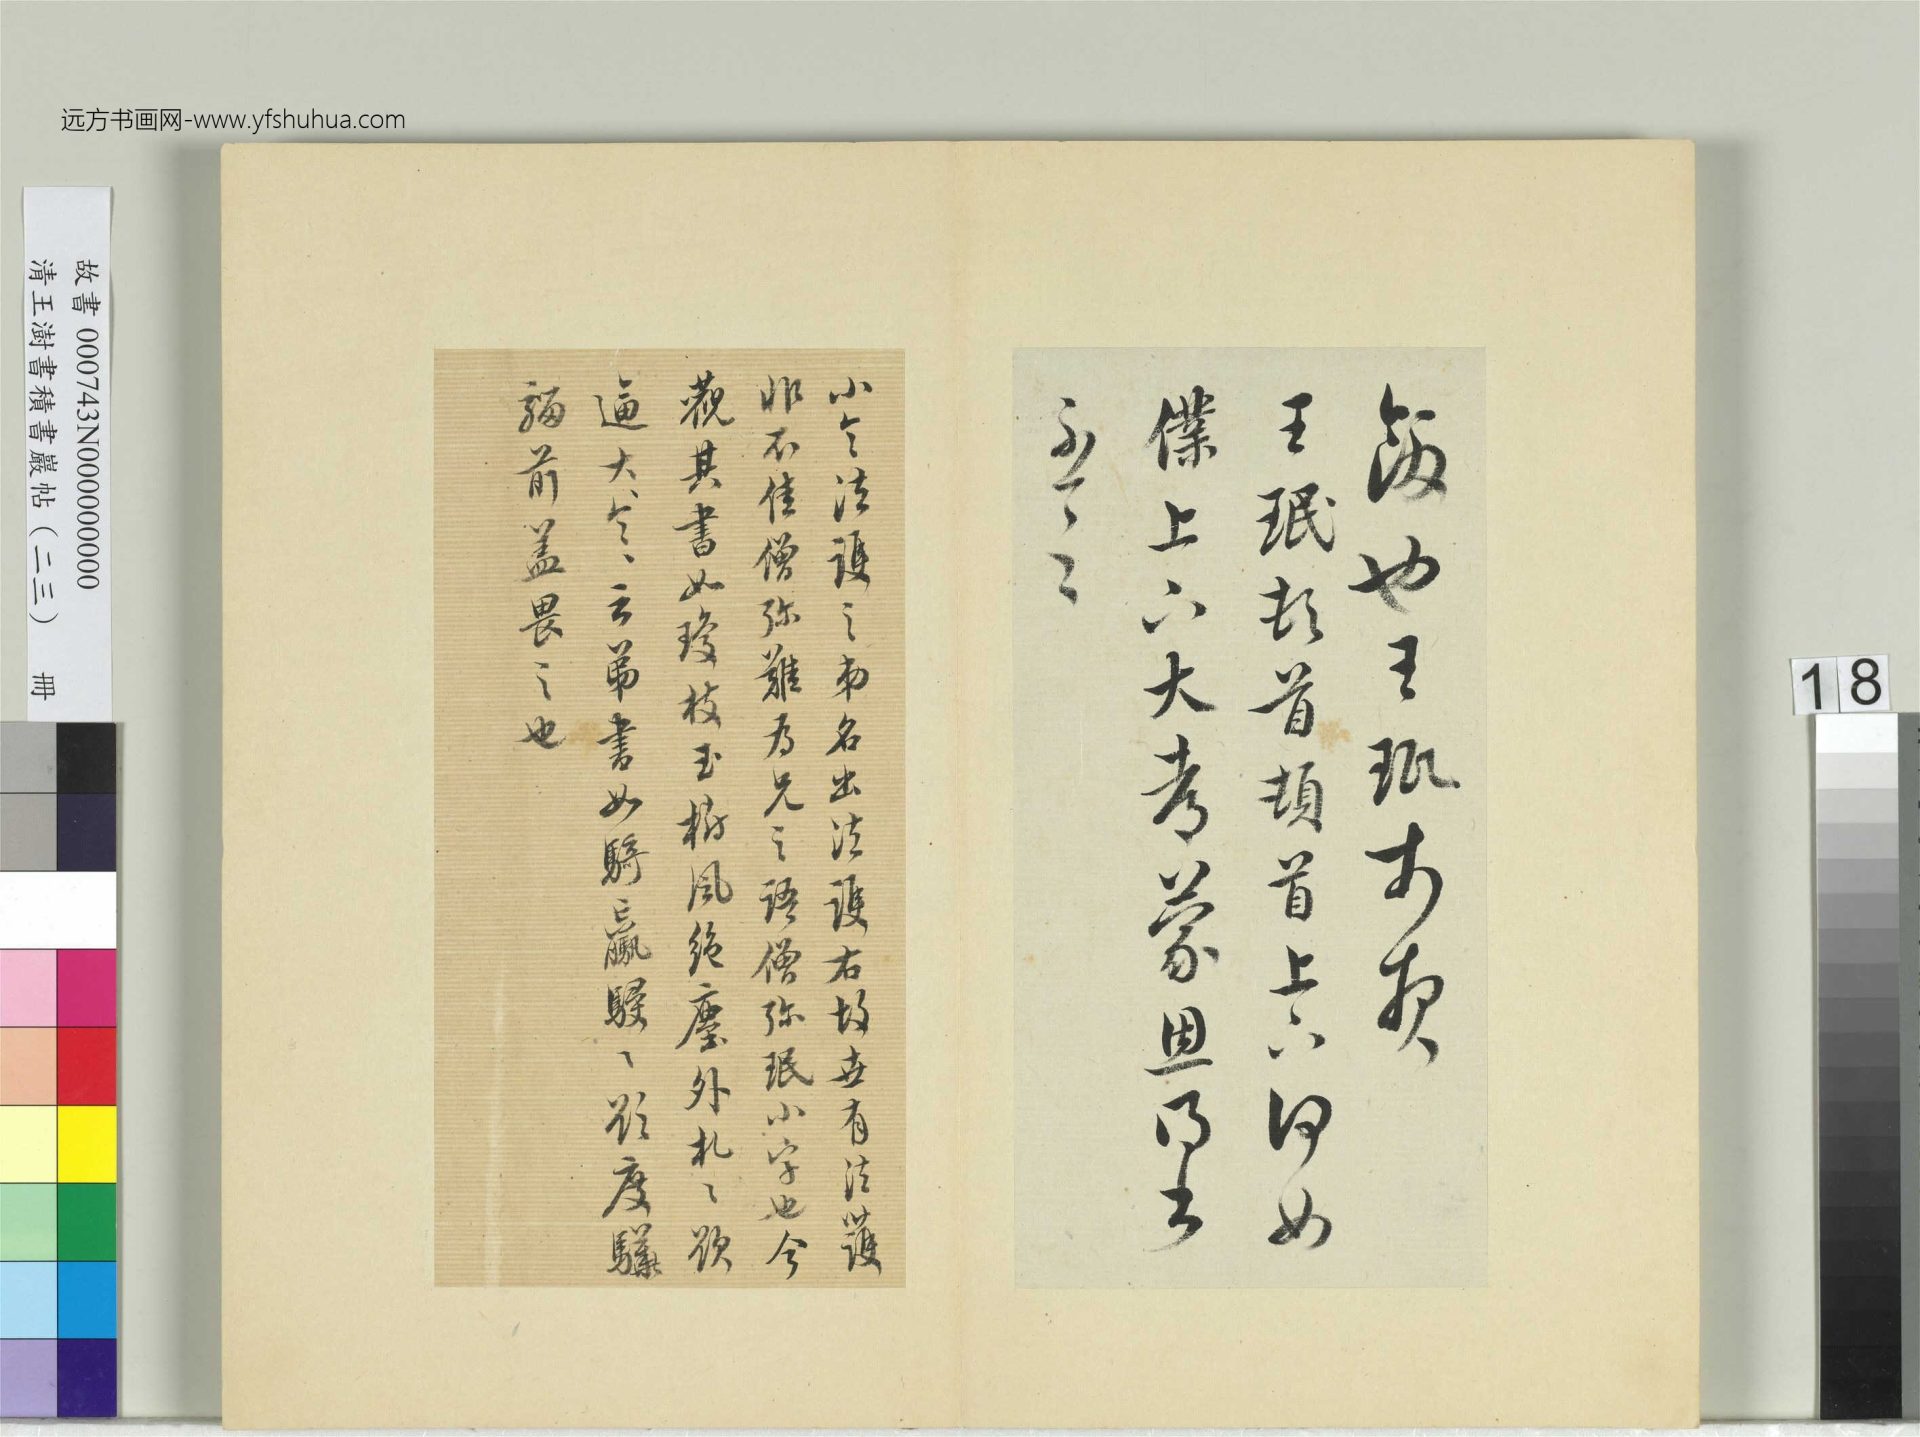 远方书画网-www.yfshuhua.com
故書 000743N000000000
清王澍書積書巖帖(二三) 冊
18
飯也王珉
王珉頓首頓首上下何如
僕上下大 蒙恩
小令法護之弟名出法護右故世有法護
非不佳僧弥難為兄之語僧弥珉小字也今
觀其書如瓊枝玉樹風絶塵外札〻欲
逼大令〻云弟書如騎羸駸〻欲度驊
騮前盖畏之也